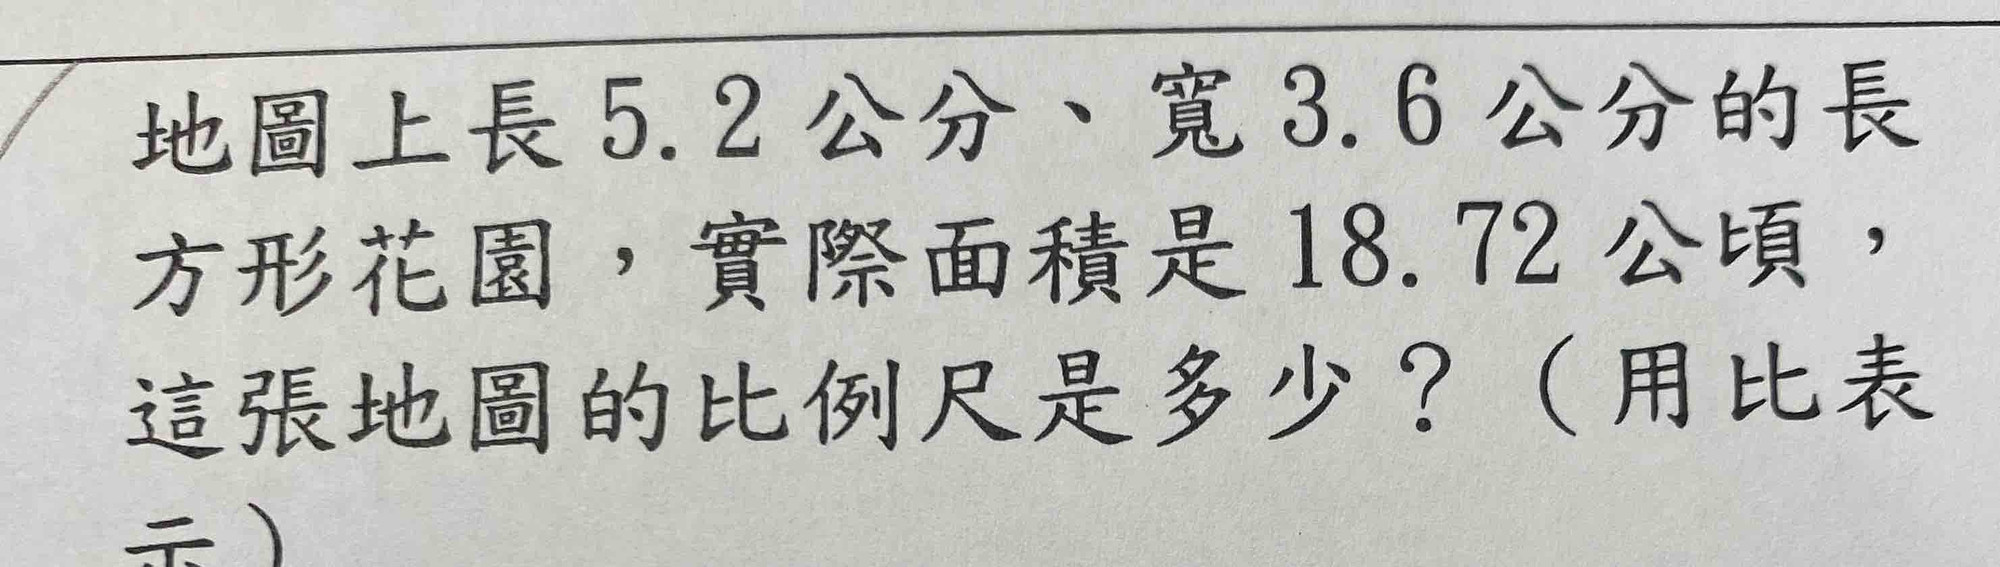 地圖上長5.2公分、寬3.6公分的長
方形花園，實際面積是18.72公頃，
這張地圖的比例尺是多少？（用比表
示）